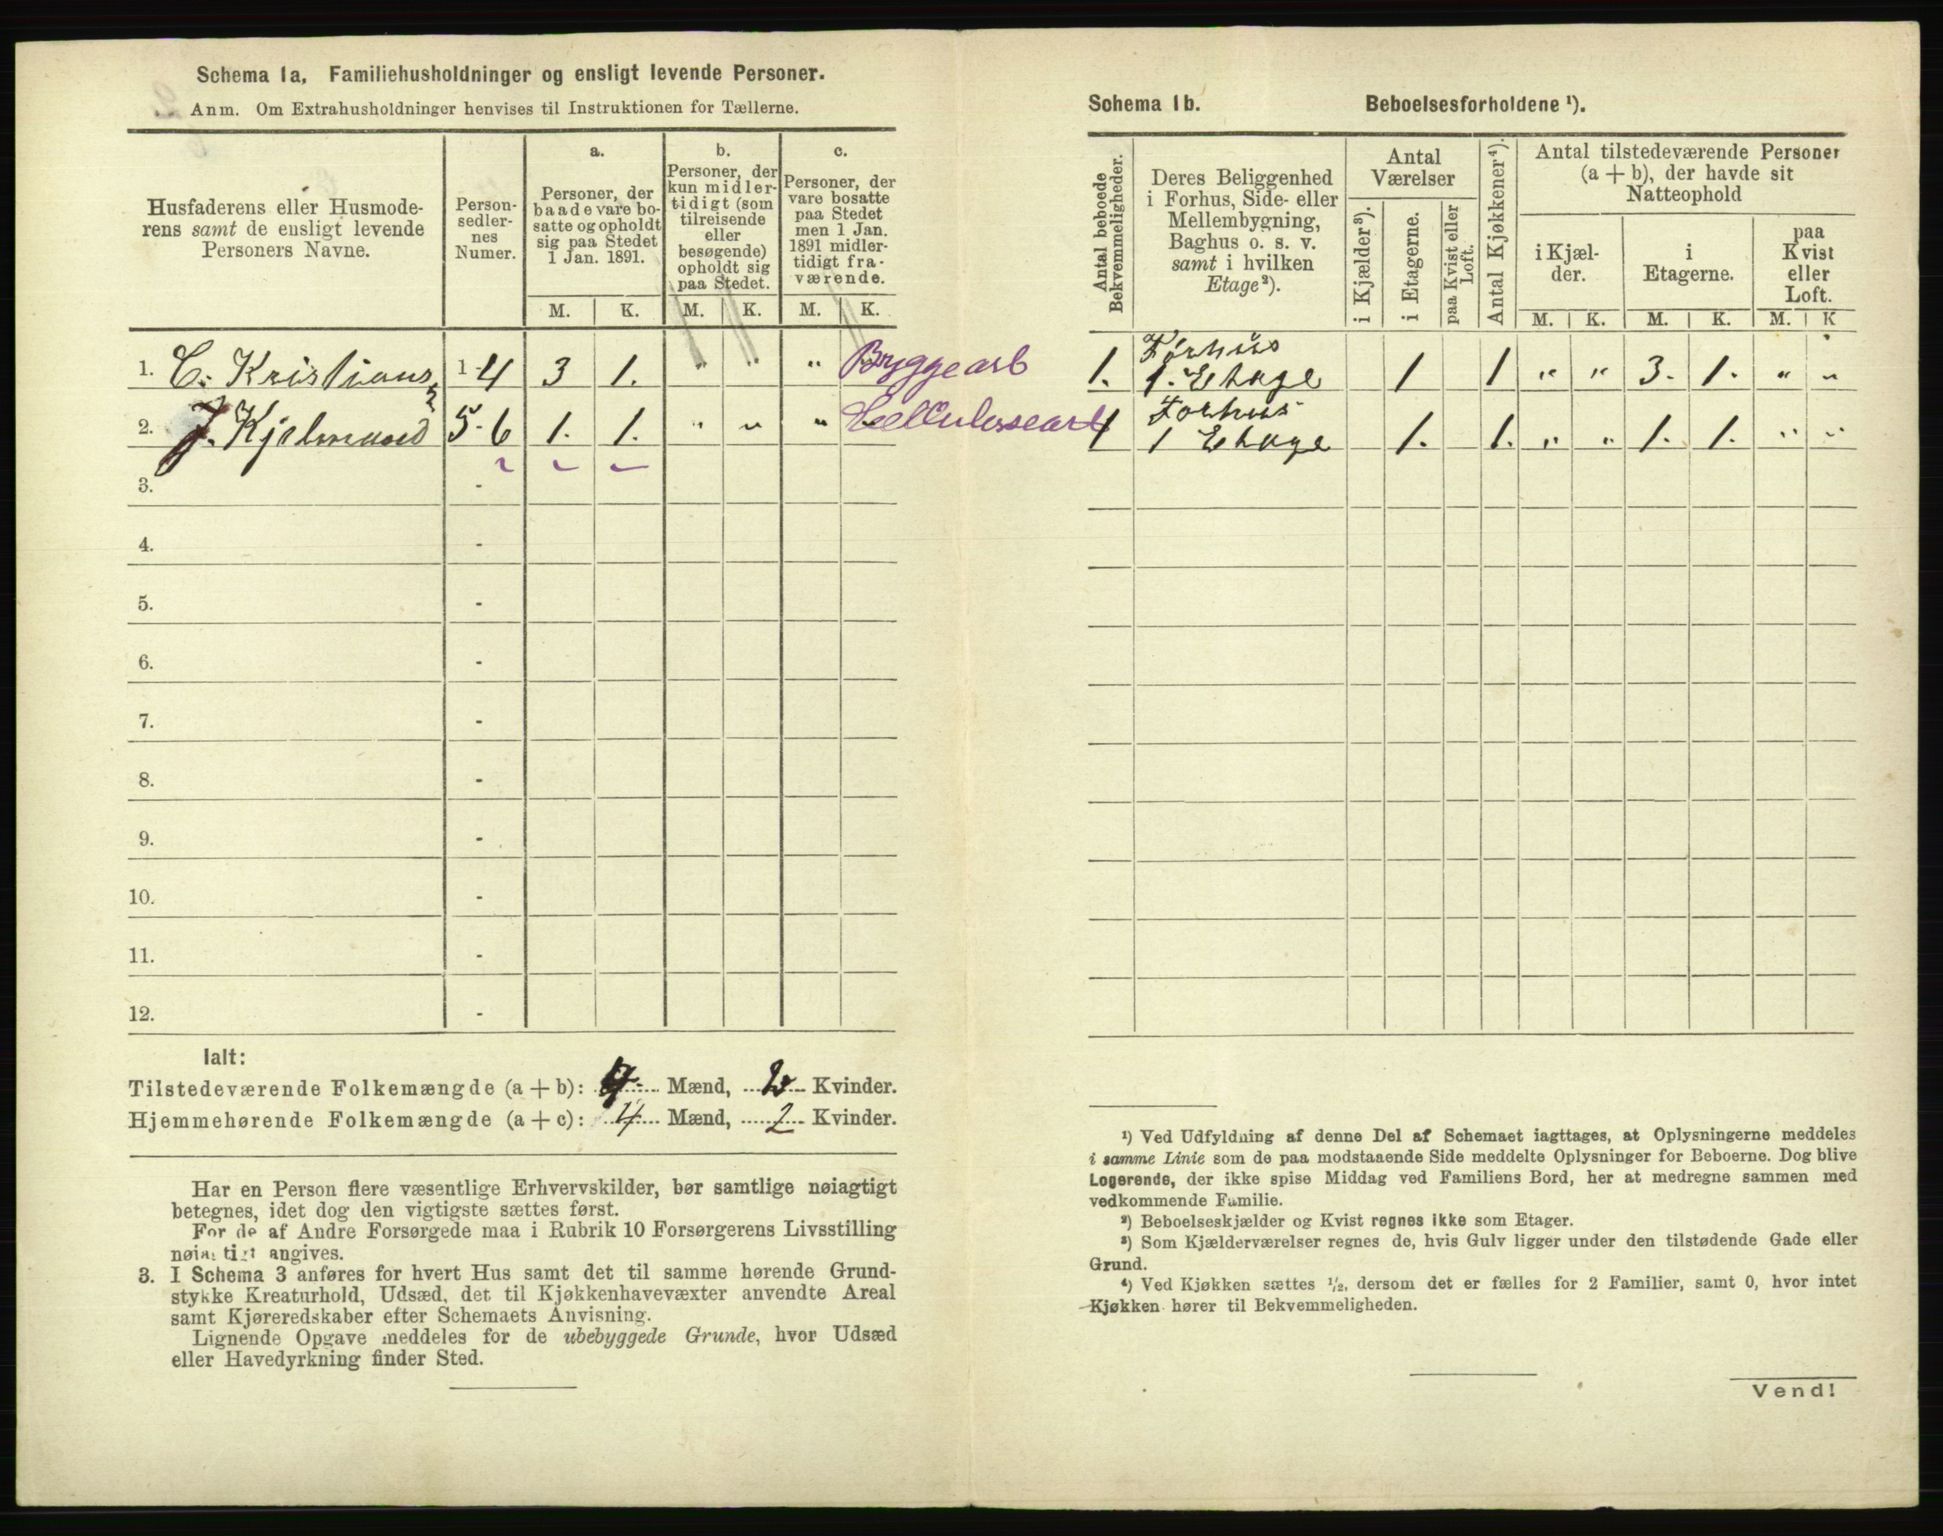 Schema 1a, Familiehusholdninger og ensligt levende Personer.
Anm. Om Extrahusholdninger henvises til Instruktionen for Tællerne.
Husfaderens eller Husmode-
rens samt de ensligt levende
Personers Navne.
Person-
sedler-
nes
Numer.
a.
Personer, der
baade vare bo-
satte og opholdt
sig paa Stedet
1 Jan. 1891.
b.
Personer, der
kun midler-
tidigt (som
tilreisende
eller
besøgende)
opholdt sig
paa Stedet.
c.
Personer, der
vare bosatte
paa Stedet
men 1 Jan.
1891 midler-
tidigt fra-
værende.
M. K. M. K. M. K.
1. C. Kristians 1-4 3 1. " " " Byggearb
2. J. Kjelmand 5-6 1. 1. " " " Cellulosearb
3. -
4. -
5. -
6. -
7. -
8. -
9. -
10. -
11. -
12. -
Ialt:
Tilstedeværende Folkemængde (a + b): 4 Mænd, 2 Kvinder.
Hjemmehørende Folkemængde (a + c): 4 Mænd, 2 Kvinder.
Har en Person flere væsentlige Erhvervskilder, bør samtlige nøiagtigt
betegnes, idet dog den vigtigste sættes først.
For de af Andre Forsørgede maa i Rubrik 10 Forsørgerens Livsstilling
nøiagtigt angives.
3. I Schema 3 anføres for hvert Hus samt det til samme hørende Grund-
stykke Kreaturhold, Udsæd, det til Kjøkkenhavevæxter anvendte Areal
samt Kjøreredskaber efter Schemaets Anvisning.
Lignende Opgave meddeles for de ubebyggede Grunde, hvor Udsæd
eller Havedyrkning finder Sted.
Schema 1b. Beboelsesforholdene ¹).
Antal beboede
Bekvemmeligheder.
Deres Beliggenhed
i Forhus, Side- eller
Mellembygning,
Baghus o. s. v.
samt i hvilken
Etage²).
Antal
Værelser
i Kjælder³).
i Etagerne.
paa Kvist eller
Loft.
Antal Kjøkkener⁴).
Antal tilstedeværende Personer
(a + b), der havde sit
Natteophold
i Kjæl-
der.
i
Etagerne.
paa
Kvist
eller
Loft.
M. K. M. K. M. K
Forhus
1. 1. Etage 1 1 " " 3. 1. " "
Forhus
1 1 Etage 1. 1. " " 1. 1. " "
¹) Ved Udfyldning af denne Del af Schemaet iagttages, at Oplysningerne meddeles
i samme Linie som de paa modstaaende Side meddelte Oplysninger for Beboerne. Dog blive
Logerende, der ikke spise Middag ved Familiens Bord, her at medregne sammen med
vedkommende Familie.
²) Beboelseskjælder og Kvist regnes ikke som Etager.
³) Som Kjælderværelser regnes de, hvis Gulv ligger under den tilstødende Gade eller
Grund.
⁴) Ved Kjøkken sættes ½, dersom det er fælles for 2 Familier, samt 0, hvor intet
Kjøkken hører til Bekvemmeligheden.
Vend!